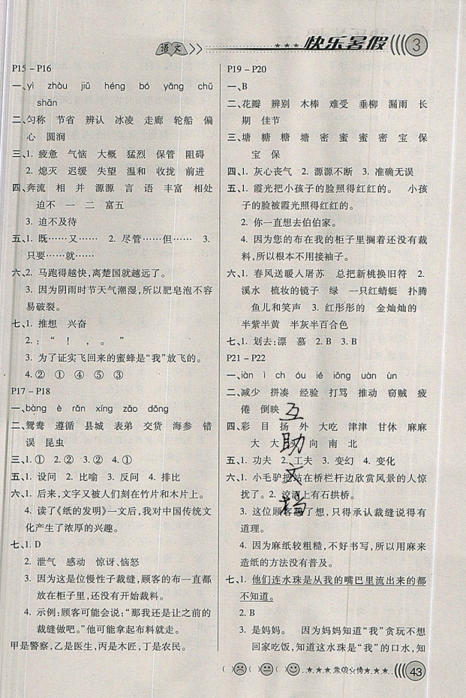 语文
快乐暑假
3
P15－P16
一、yì zhòu jiū héng bó yǎng chǔ
shān
二、匀称 节省 辨认 冰凌 走廊 轮船 偏
心 圆润
三、1. 疲惫 气恼 大概 猛烈 保管 阻碍
2. 熄灭 迟缓 失望 温和 收拢 前进
四、奔流 相 并 源源 言 语 丰富 相处
迫不 一 二 富五
3. 迫不及待
五、1. 既……又…… 2. 尽管……但…… 3.
只要……就……
六、2. 马跑得越快，离楚国就越远了。
3. 因为阴雨时节天气潮湿，所以肥皂泡不容
易破裂。
七、1. 推想 兴奋
2. ： “ ！ ， 。 ”
3. 为了证实飞回来的蜜蜂是“我”放飞的。
4. ② ① ④ ⑤ ③
P17－P18
一、bàng è rǎn xíng zāo dǎng
二、鸳鸯 遵循 县城 表弟 交货 海参 错
误 昆虫
三、1. ① 2. ② 3. ② 4. ①
五、1. 设问 2. 比喻 3. 反问 4. 排比
六、1. 后来，文字又被人们刻在竹片和木片上。
4. 读了《纸的发明》一文后，我对中国传统文
化产生了浓厚的兴趣。
七、1. D
2. 泄气 感动 惊讶、恼怒
3. 因为这是位慢性子裁缝，顾客的布一直都
放在柜子里，还没有开始裁料。
4. 示例：顾客可能会说：“那我还是让之前的
裁缝做吧。”他可能拿起布料就走。
甲是警察，乙是医生，丙是木匠，丁是农民。
P19－P20
一、B
二、花瓣 辨别 木棒 难受 垂柳 漏雨 长
期 佳节
三、塘 糖 糖 塘 密 蜜 蜜 密 宝 保
宝 保
四、1. 灰心丧气 2. 源源不断 3. 准确无误
五、1. 霞光把小孩子的脸照得红红的。 小孩
子的脸被霞光照得红红的。
2. 你一直想去伯伯家。
4. 因为您的布在我的柜子里搁着还没有裁
料，所以根本不用接袖子。
六、1. 春风送暖入屠苏 总把新桃换旧符 2.
溪水 梳妆的镜子 绿 一只红蜻蜓 扑腾
鱼儿和笑声 3. 红彤彤的 金灿灿的
半紫半黄 半灰半百合色
七、1. 划去：漂 慕 2. B 3. B
P21－P22
二、减少 拼凑 经验 打骂 推动 窃贼 疲
倦 倒映
四、彩 目 扬 外 大吃 津津 甘休 麻麻
五、1. 功夫 2. 工夫 3. 变幻 4. 变化
六、1. 小毛驴把站在桥栏杆边欣赏风景的人惊
扰了。 2. 这河上有石拱桥。
道理。
4. 因为麻纸较粗糙，不好书写，所以用麻来
造纸的方法没有普及。
七、1. 他们连水珠是从我的嘴巴里流出来的都
不知道。
2. B
3. 是妈妈。 因为妈妈知道“我”贪玩不想
回家吃饭，知道这水珠是“我”的口水，知
互助文档
43